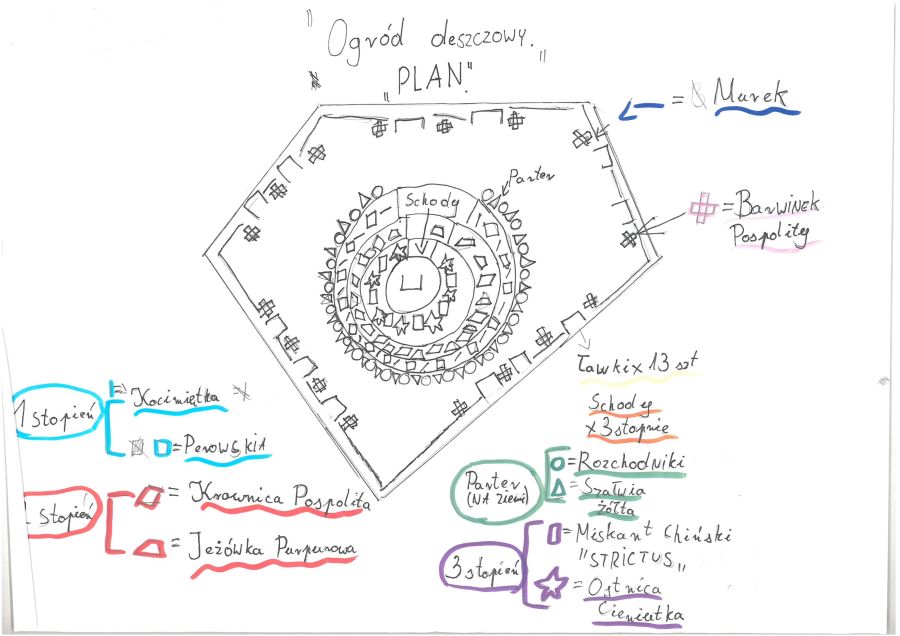 "Ogród deszczowy."
"PLAN."
= Murek
Parter
Schody
= Barwinek
Pospolity
Ławki x 13 szt
Schody
x 3 stopnie
1 stopień
= Kocimiętka
= Perowskia
stopień
= Krownica Pospolita
= Jeżówka Purpurowa
Parter
(NA ziemi)
= Rozchodniki
= Szałwia
żółta
3 stopień
= Miskant Chiński
"STRICTUS"
= Ostnica
Cieniutka